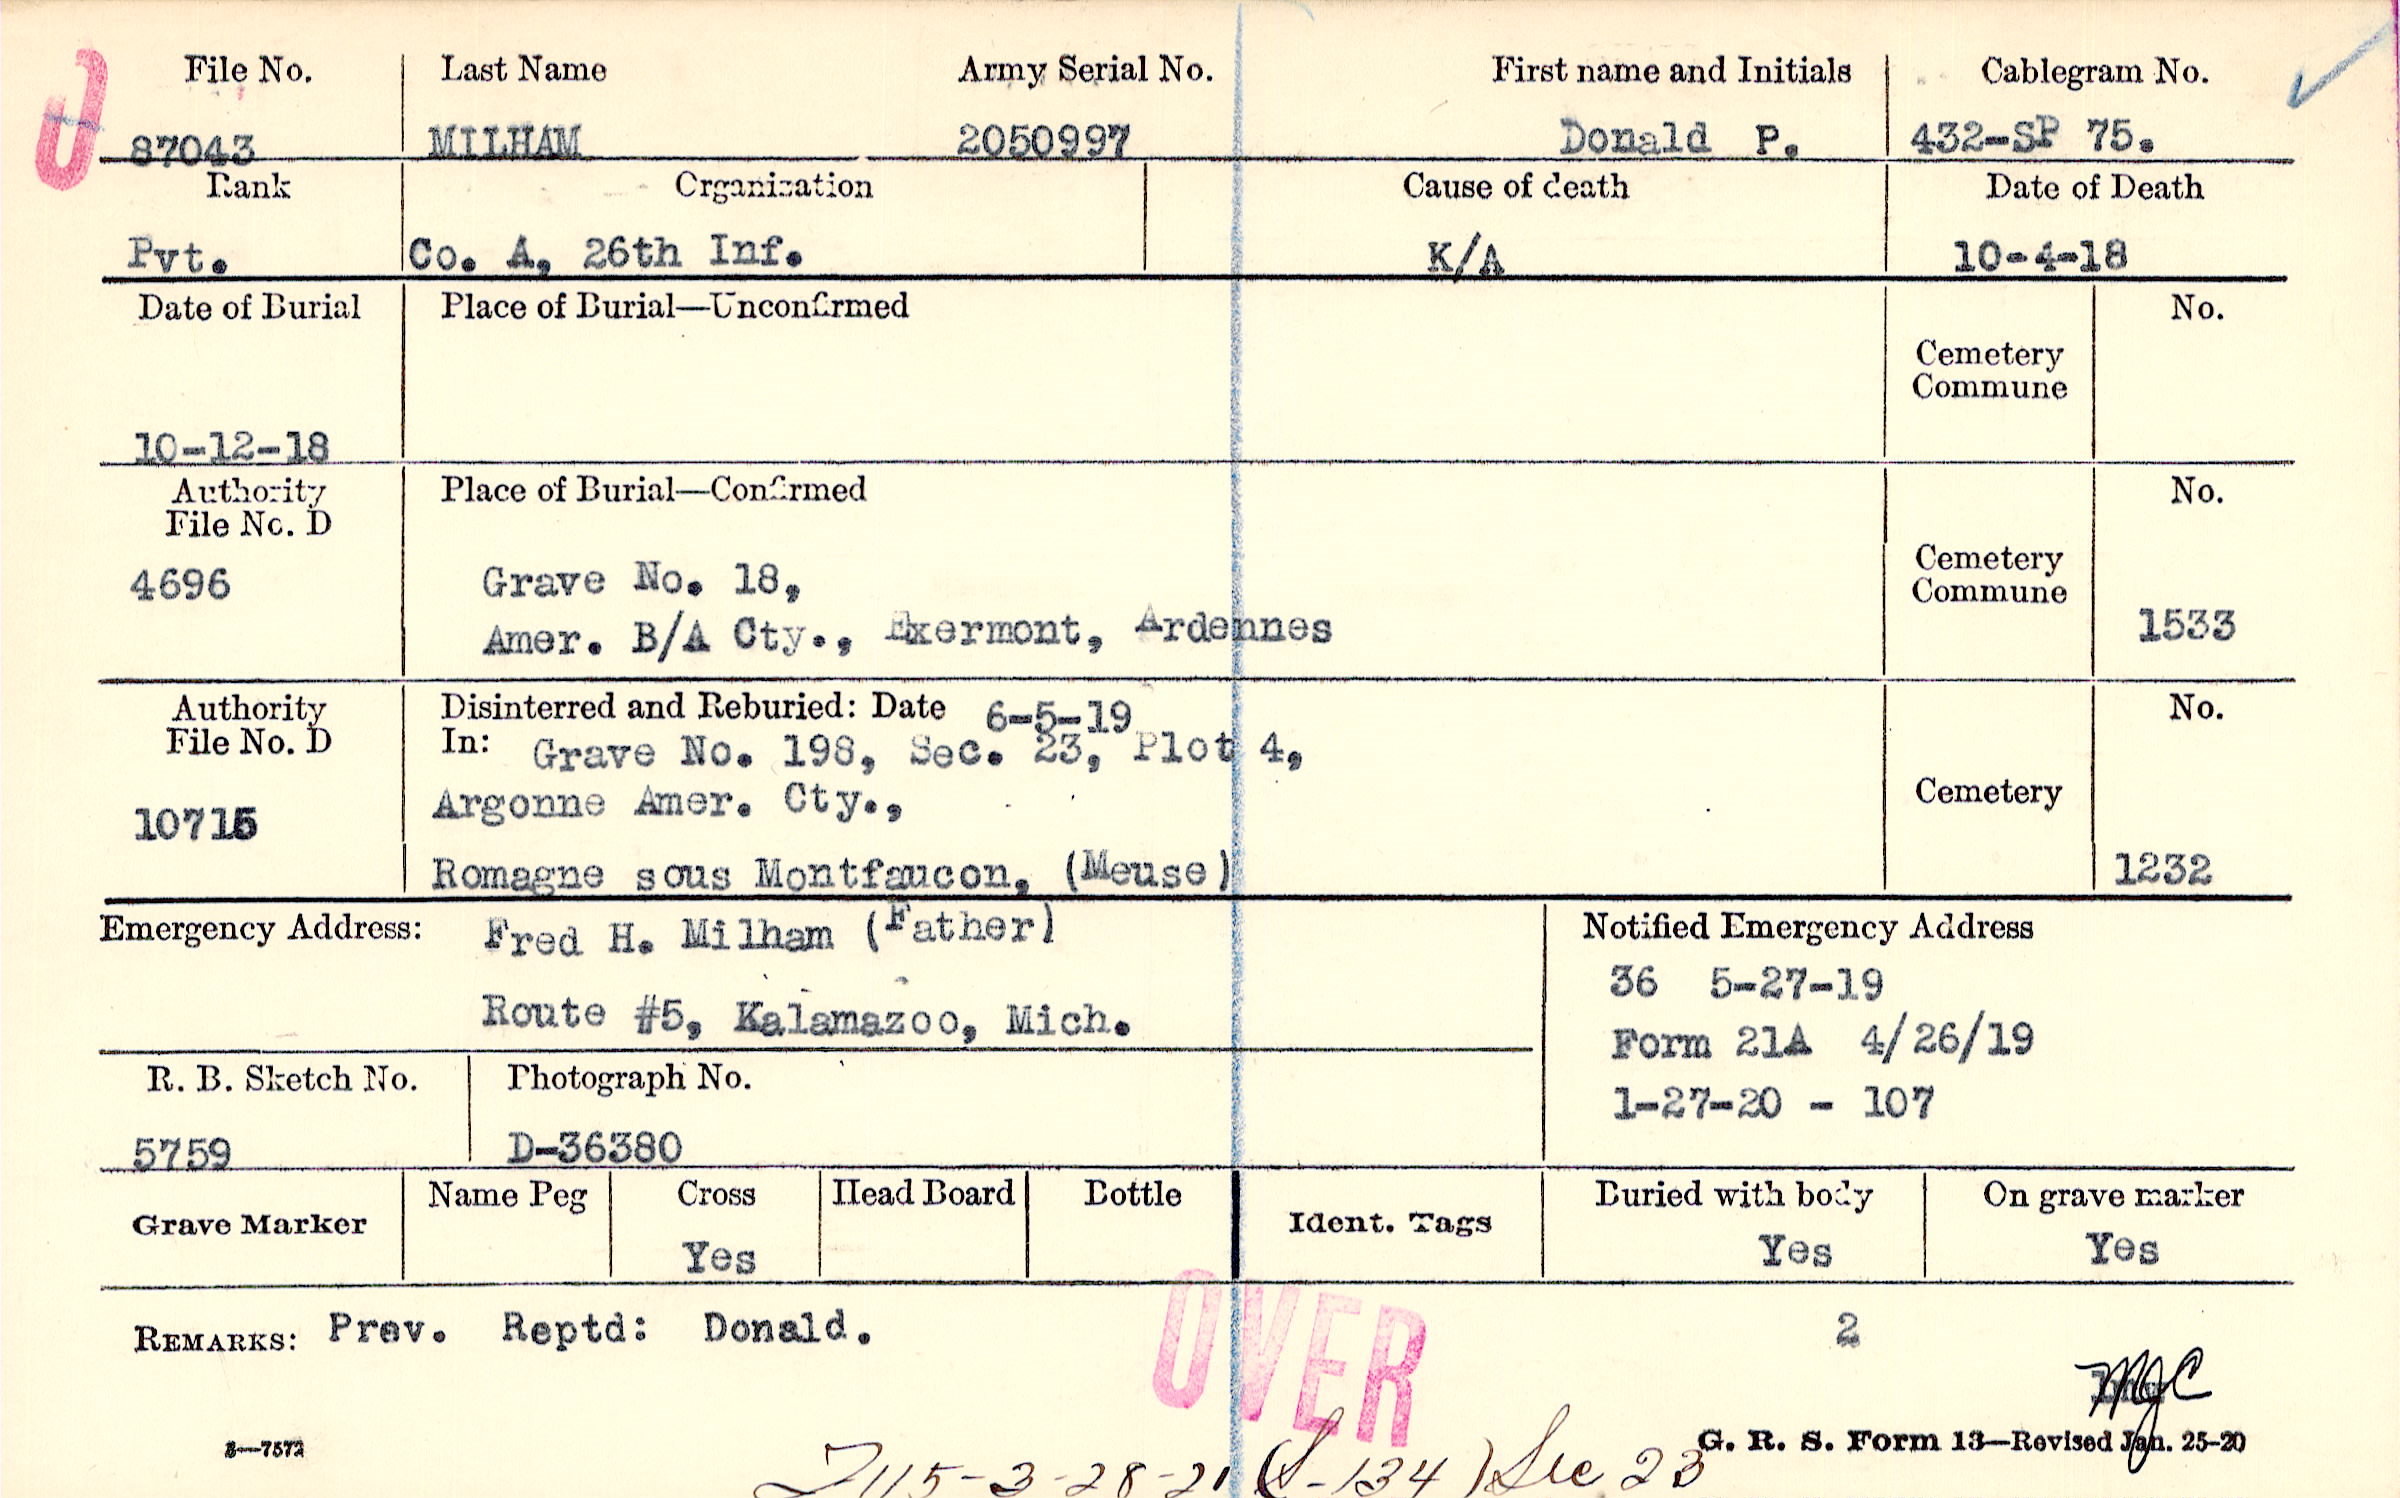 File No. Last Name Army Serial No. First name and Initials Cablegram No.
87043 MILHAM 2050997 Donald P. 432-SP 75.
Rank Organization Cause of death Date of Death
Pvt. Co. A, 26th Inf. K/A 10-4-18
Date of Burial Place of Burial—Unconfirmed No.
Cemetery
Commune
10-12-18
Authority Place of Burial—Confirmed No.
File No. D
4696 Grave No. 18, Cemetery
Commune
Amer. B/A Cty., Exermont, Ardennes 1533
Authority Disinterred and Reburied: Date 6-5-19 No.
File No. D In: Grave No. 198, Sec. 23, Plot 4,
Argonne Amer. Cty., Cemetery
10715
Romagne sous Montfaucon, (Meuse) 1232
Emergency Address: Fred H. Milham (Father) Notified Emergency Address
36 5-27-19
Route #5, Kalamazoo, Mich. Form 21A 4/26/19
R. B. Sketch No. Photograph No. 1-27-20 - 107
5759 D-36380
Grave Marker Name Peg Cross Head Board Bottle Ident. Tags Buried with body On grave marker
Yes Yes Yes
REMARKS: Prev. Reptd: Donald. 2
OVER
MJC
3—7572 G. R. S. Form 13—Revised Jan. 25-20
3-28-21 (S-134) Sec 23